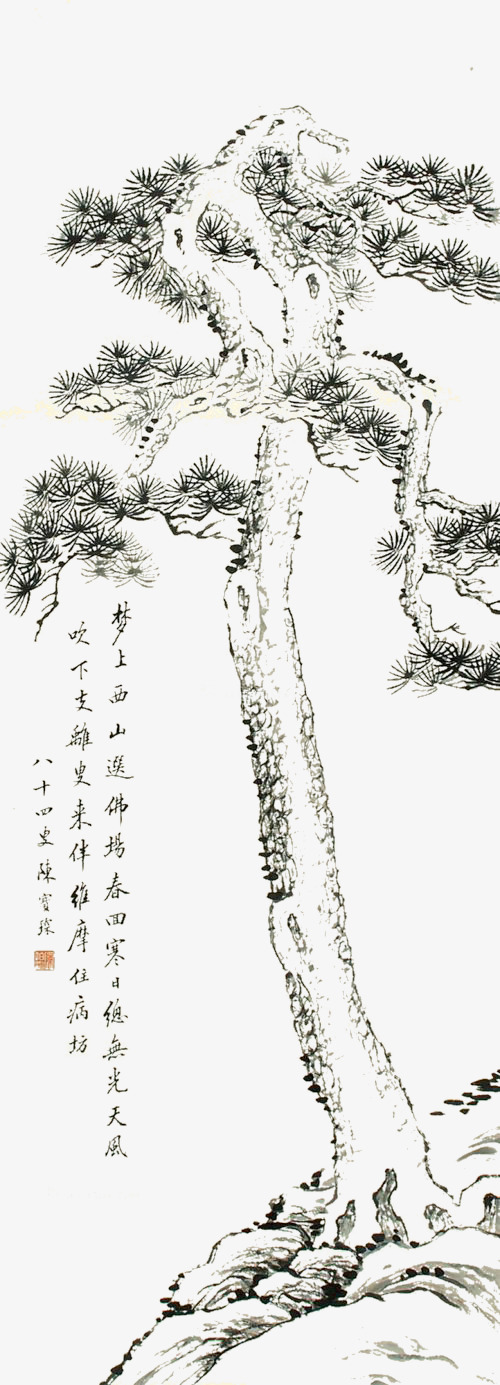 梦上西山選佛場春回寒日總無光天風
吹下支離叟来伴維摩住病坊
八十四叟陳寶琛